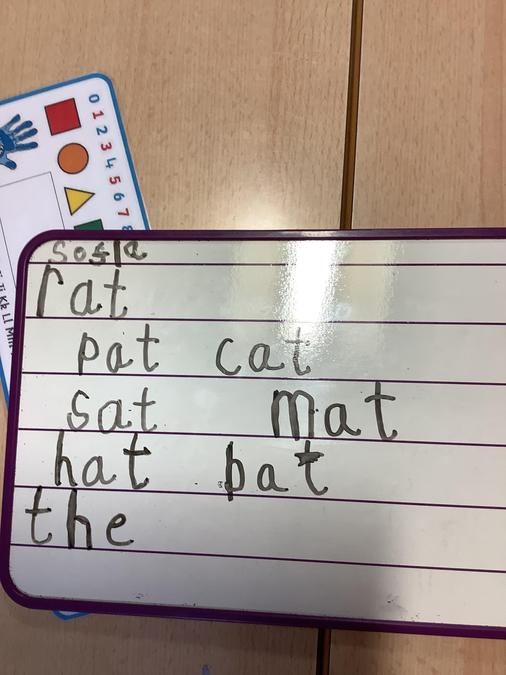 sofia
rat
pat cat
sat mat
hat bat
the
0 1 2 3 4 5 6 7 8
Kk Ll Mm